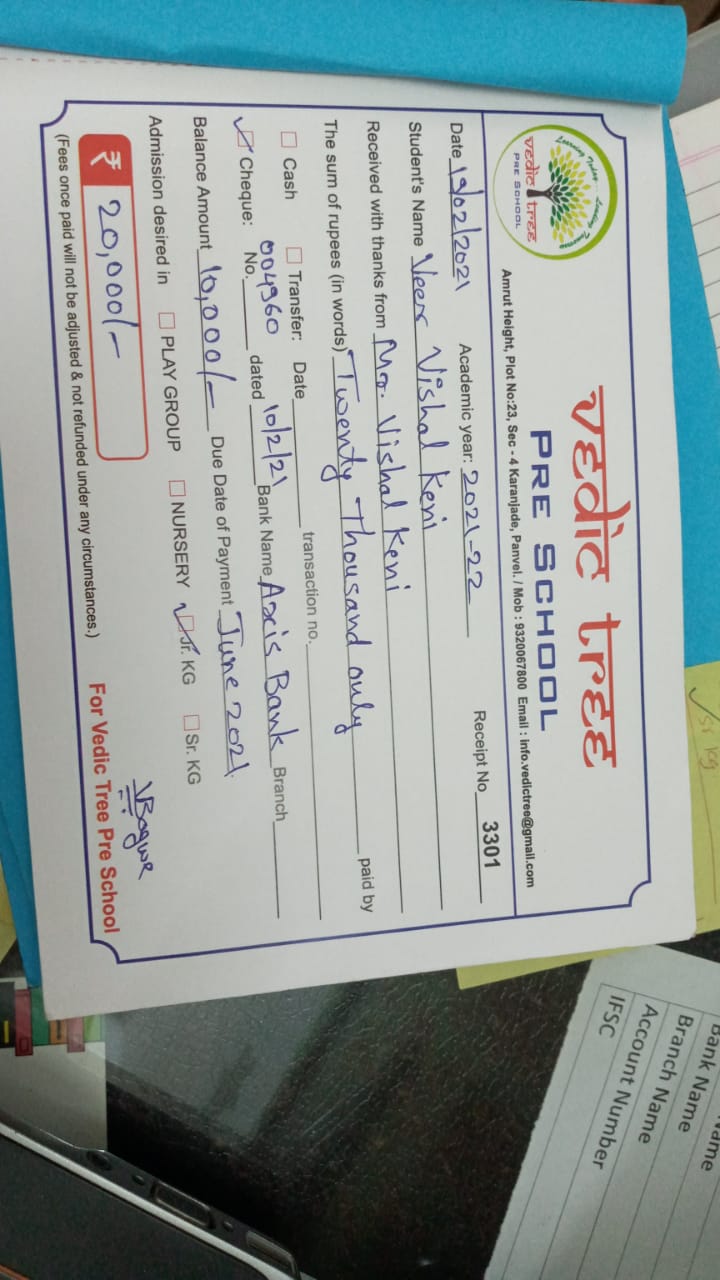 Learning Today... Leading Tomorrow
vedic tree
PRE SCHOOL
vedic tree
PRE SCHOOL
Amrut Height, Plot No:23, Sec - 4 Karanjade, Panvel. / Mob : 9320067800 Email : info.vedictree@gmail.com
Date 19/02/2021 Academic year: 2021-22 Receipt No 3301
Student's Name Veer Vishal Keni
Received with thanks from Mr. Vishal Keni
The sum of rupees (in words) Twenty Thousand only paid by
Cash Transfer: Date transaction no.
Cheque: No. 004960 dated 10/2/21 Bank Name Axis Bank Branch
Balance Amount 10,000/- Due Date of Payment June 2021.
Admission desired in PLAY GROUP NURSERY Jr. KG Sr. KG
₹ 20,000/-
VBagwe
(Fees once paid will not be adjusted & not refunded under any circumstances.) For Vedic Tree Pre School
Sr kg
Name
Bank Name
Branch Name
Account Number
IFSC